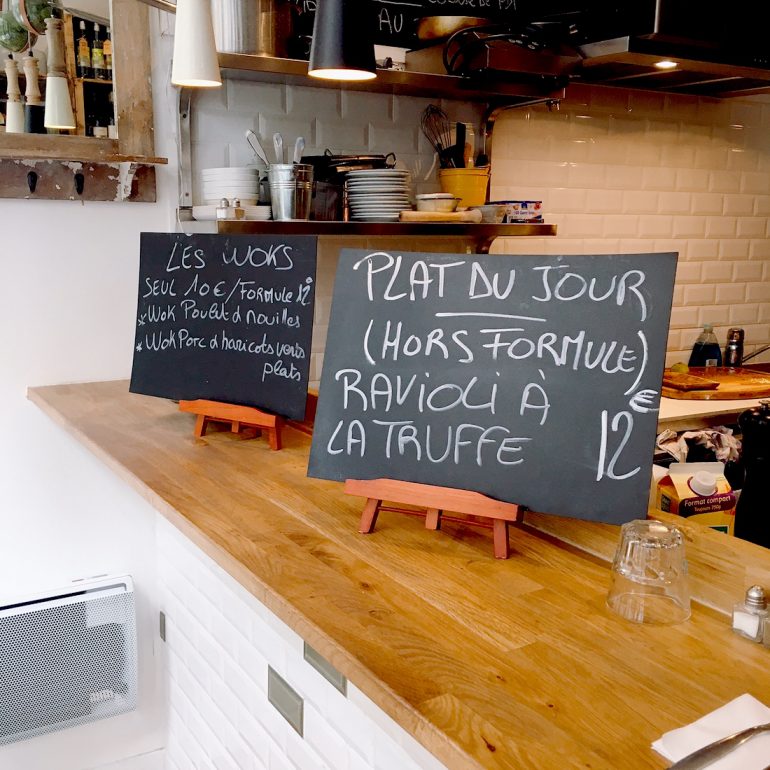 AU
LES WOKS
SEUL 10€/FORMULE 12
*WOK Poulet d nouilles
*WOK Porc d haricots verts
plats
PLAT DU JOUR
(HORS FORMULE)
RAVIOLI À
LA TRUFFE 12€
Format compact